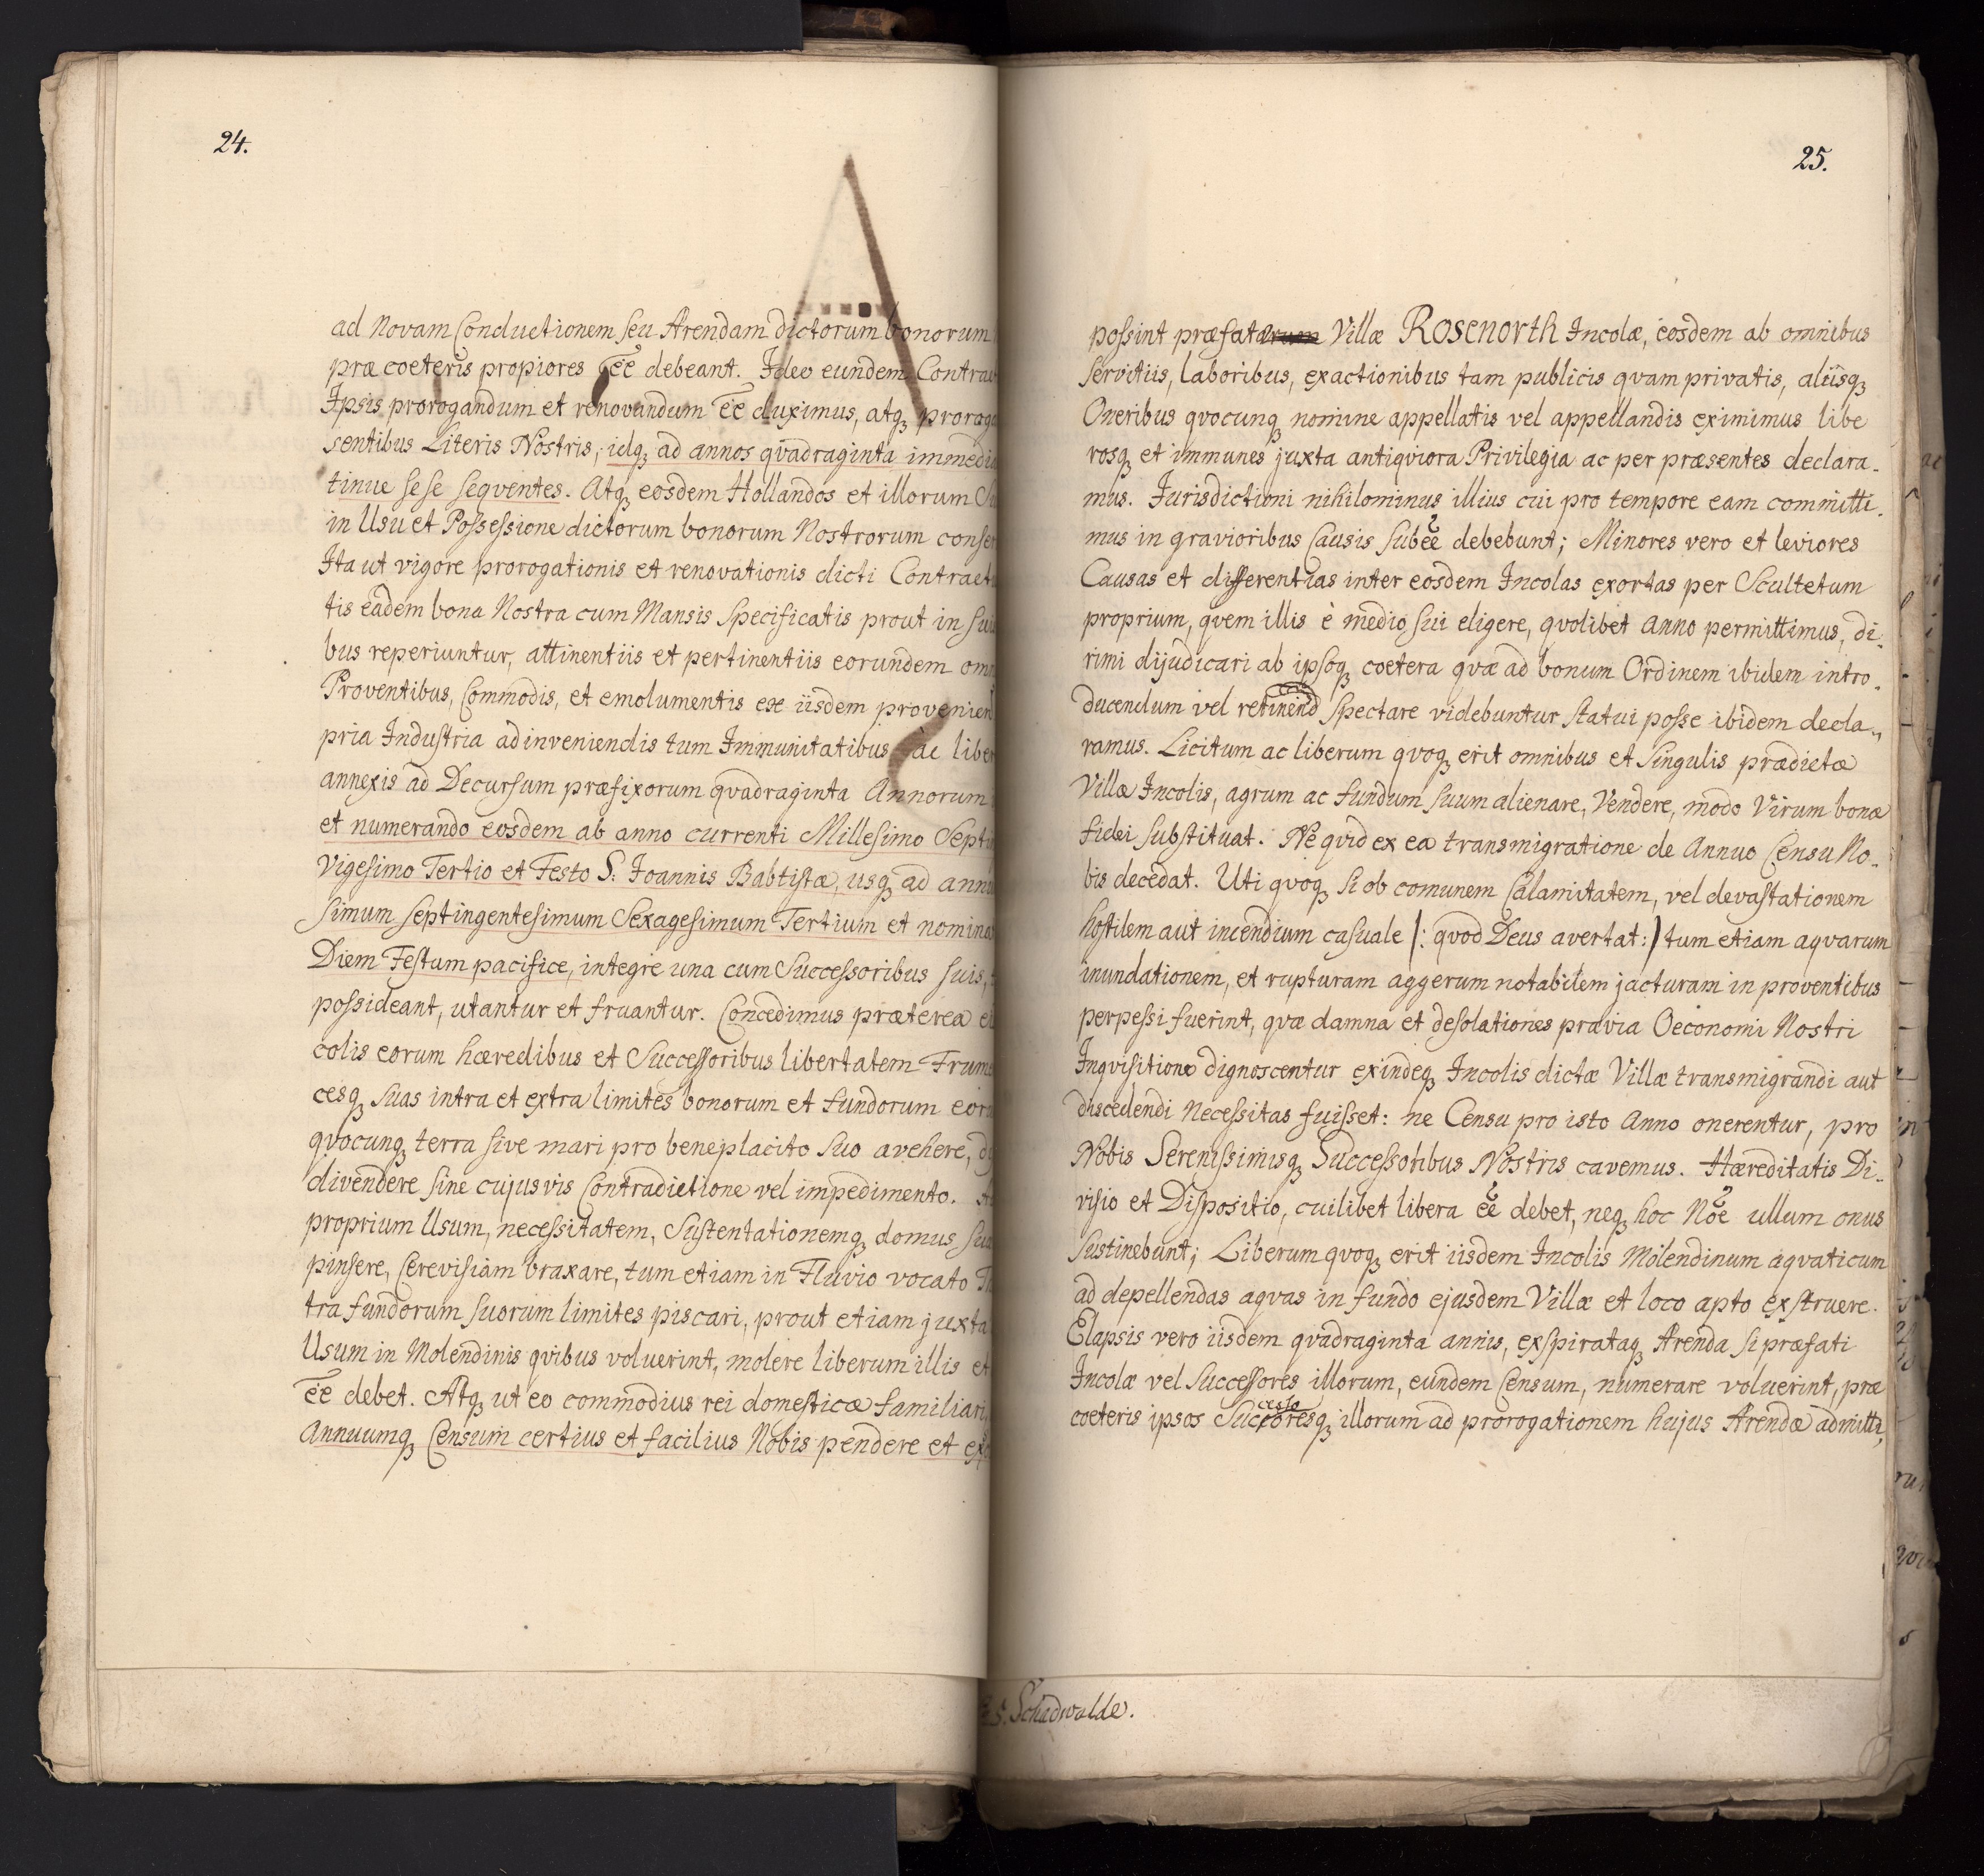 24.
ad Novam Conductionem seu Arendam dictorum bonorum
præ coeteris propiores ee debeant. Ideo eundem Contrac
Ipsis prorogandum et renovandum ee duximus, atq proroga
sentibus Literis Nostris, idq ad annos qvadraginta immedia
tinue sese seqventes. Atq eosdem Hollandos et illorum Su
in Usu et Possessione dictorum bonorum Nostrorum conser
Ita ut vigore prorogationis et renovationis dicti Contract
tis eadem bona Nostra cum Mansis Specificatis prout in sui
bus reperiuntur, attinentiis et pertinentiis eorundem omn
Proventibus, Commodis, et emolumentis ex iisdem provenient
pria Industria adinveniendis tum Immunitatibus ac liber
annexis ad Decursum præfixorum qvadraginta Annorum
et numerando eosdem ab anno currenti Millesimo Septi
Vigesimo Tertio et Festo S. Joannis Babtistæ, usq ad annu
simum septingentesimum Sexagesimum Tertium et nomina
Diem Festum pacifice, integre una cum Successoribus suis,
possideant, utantur et fruantur. Concedimus præterea ei
colis eorum hæredibus et Successoribus libertatem Frume
cesq suas intra et extra limites bonorum et fundorum eoru
qvocunq terra sive mari pro beneplacito suo avehere, di
divendere sine cujusvis Contradictione vel impedimento.
proprium Usum, necessitatem, Sustentationemq domus suæ
pinsere, Cerevisiam braxare, tum etiam in Fluvio vocato
tra fundorum suorum limites piscari, prout etiam juxta
Usum in Molendinis qvibus voluerint, molere liberum illis et
ee debet. Atq ut eo commodius rei domesticæ familiari
Annuumq Censum certius et facilius Nobis pendere et ex
25.
possint præfatarum Villæ Rosenorth Incolæ, eosdem ab omnibus
servitiis, laboribus, exactionibus tam publicis qvam privatis, aliisq
Oneribus qvocunq nomine appellatis vel appellandis eximimus libe
rosq et immunes juxta antiqviora Privilegia ac per præsentes declara-
mus. Iurisdictioni nihilominus illius cui pro tempore eam committi-
mus in gravioribus Causis subee debebunt; Minores vero et leviores
Causas et differentias inter eosdem Incolas exortas per Scultetum
proprium, qvem illis è medio sui eligere, qvolibet anno permittimus, di-
rimi dijudicari ab ipsoq coetera qvæ ad bonum Ordinem ibidem intro-
ducendum vel retinend spectare videbuntur statui posse ibidem decla-
ramus. Licitum ac liberum qvoq erit omnibus et Singulis prædictæ
Villæ Incolis, agrum ac fundum suum alienare, Vendere, modo Virum bonæ
fidei substituat. Ne qvid ex ea transmigratione de Annuo Censu No-
bis decedat. Uti qvoq si ob comunem Calamitatem, vel devastationem
hostilem aut incendium casuale |: qvod Deus avertat :| tum etiam aqvarum
inundationem, et rupturam aggerum notabilem jacturam in proventibus
perpessi fuerint, qvæ damna et desolationes prævia Oeconomi Nostri
Inqvisitione dignoscentur exindeq Incolis dictæ Villæ transmigrandi aut
discedendi Necessitas fuisset: ne Censu pro isto Anno onerentur, pro
Nobis Serenissimisq Successoribus Nostris cavemus. Hæreditatis Di-
visio et Dispositio, cuilibet libera ee debet, neq hoc Noe ullum onus
sustinebunt; Liberum qvoq erit iisdem Incolis Molendinum aqvaticum
ad depellendas aqvas in fundo ejusdem Villæ et loco apto exstruere.
Elapsis vero iisdem qvadraginta annis, exspirataq Arenda si præfati
Incolæ vel Successores illorum, eundem Censum, numerare voluerint, præ
coeteris ipsos Successoresq illorum ad prorogationem hujus Arendæ admitti,
S. Schadwalde.